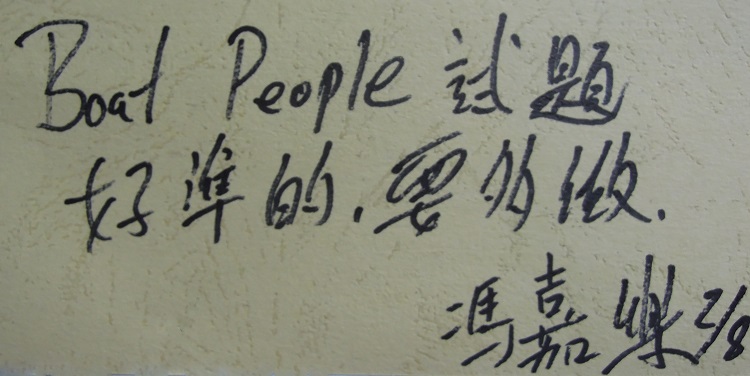 Boat People 試題
好準的.要多做.
馮嘉樂 2/8